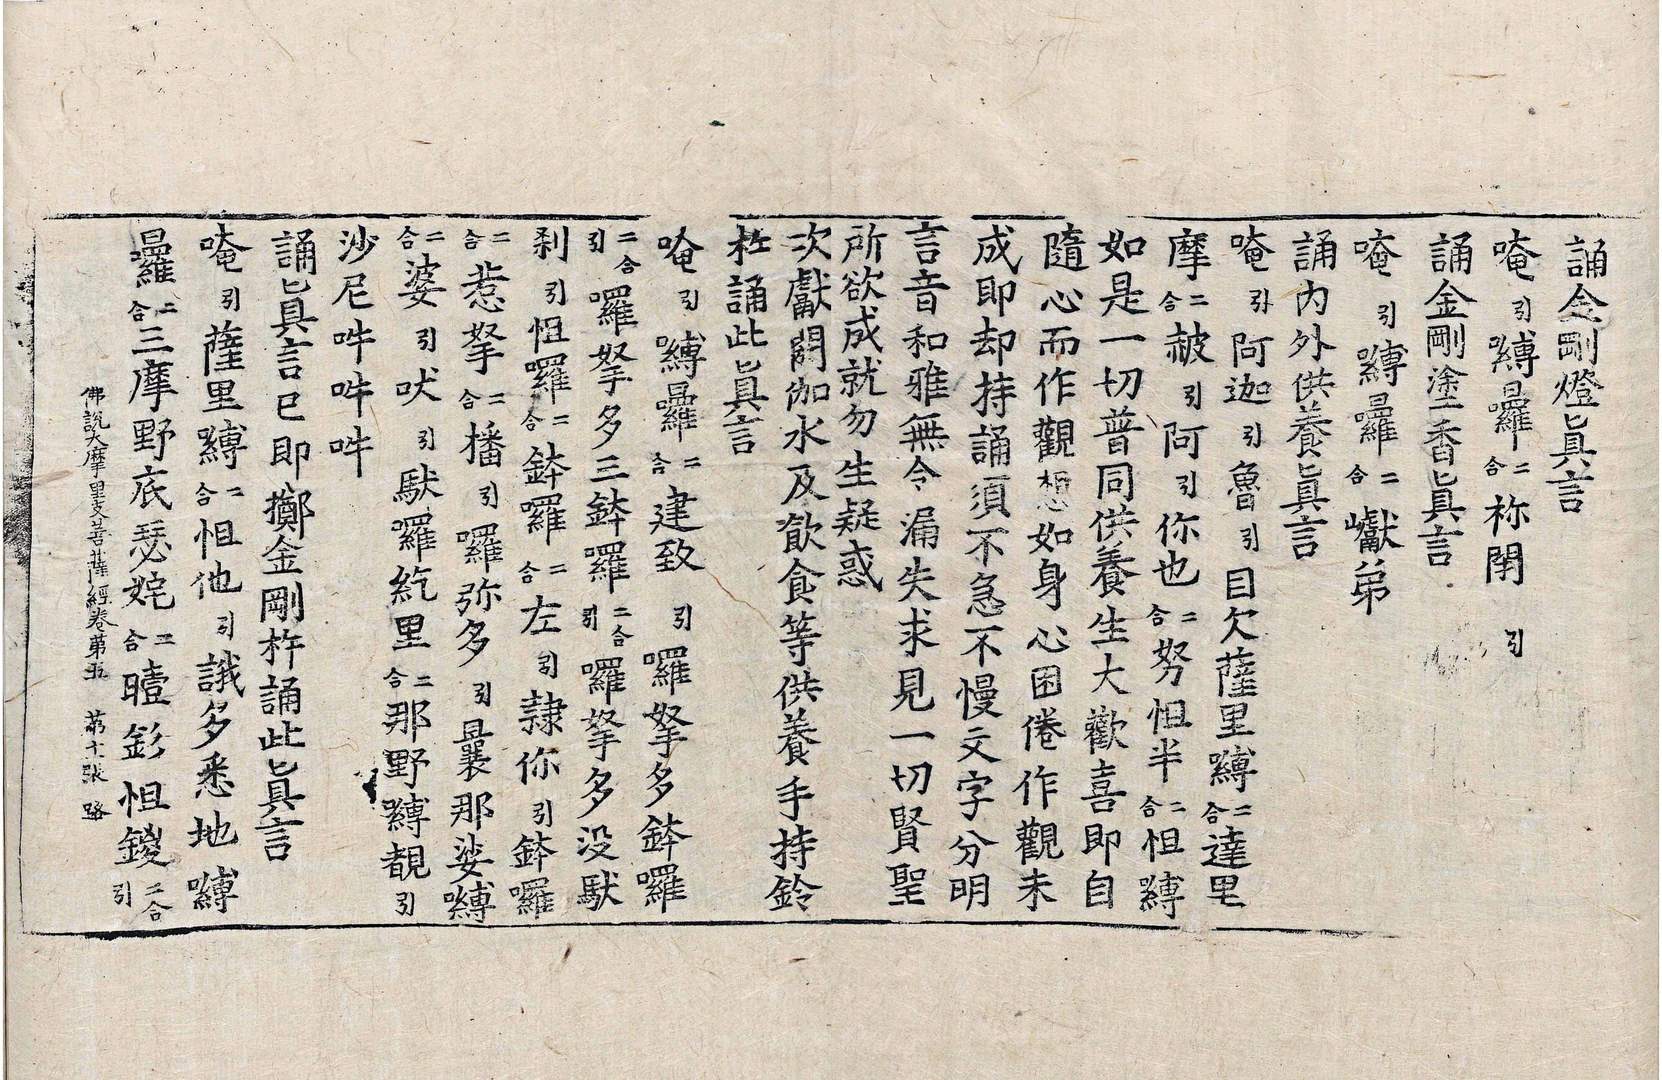 誦金剛燈眞言
唵引嚩𡆗囉二合祢閉引
誦金剛塗香眞言
唵引嚩日囉二合巘弟
誦内外供養眞言
唵引阿迦引魯引目欠薩里嚩二合達里
摩二合赧引阿引你也二合努怛半二合怛嚩
如是一切普同供養生大歡喜即自
隨心而作觀想如身心困倦作觀未
成即却持誦須不急不慢文字分明
言音和雅無令漏失求見一切賢聖
所欲成就勿生疑惑
次獻閼伽水及飲食等供養手持鈴
杵誦此眞言
唵引嚩日囉二合建致引囉拏多鉢囉
二合引囉拏多三鉢囉二合引囉拏多没馱
刹引怛囉二合鉢囉二合左引隷你引鉢囉
二合惹拏二合播引囉弥多引曩那娑嚩
二合婆引吠引馱囉紇里二合那野嚩覩引
沙尼吽吽吽
誦眞言已即擲金剛杵誦此眞言
唵引薩里嚩二合怛他引誐多悉地嚩
日囉二合三摩野底瑟姹二合曀釤怛鑁二合引
佛説大摩里支菩薩經卷第五 第十張 路